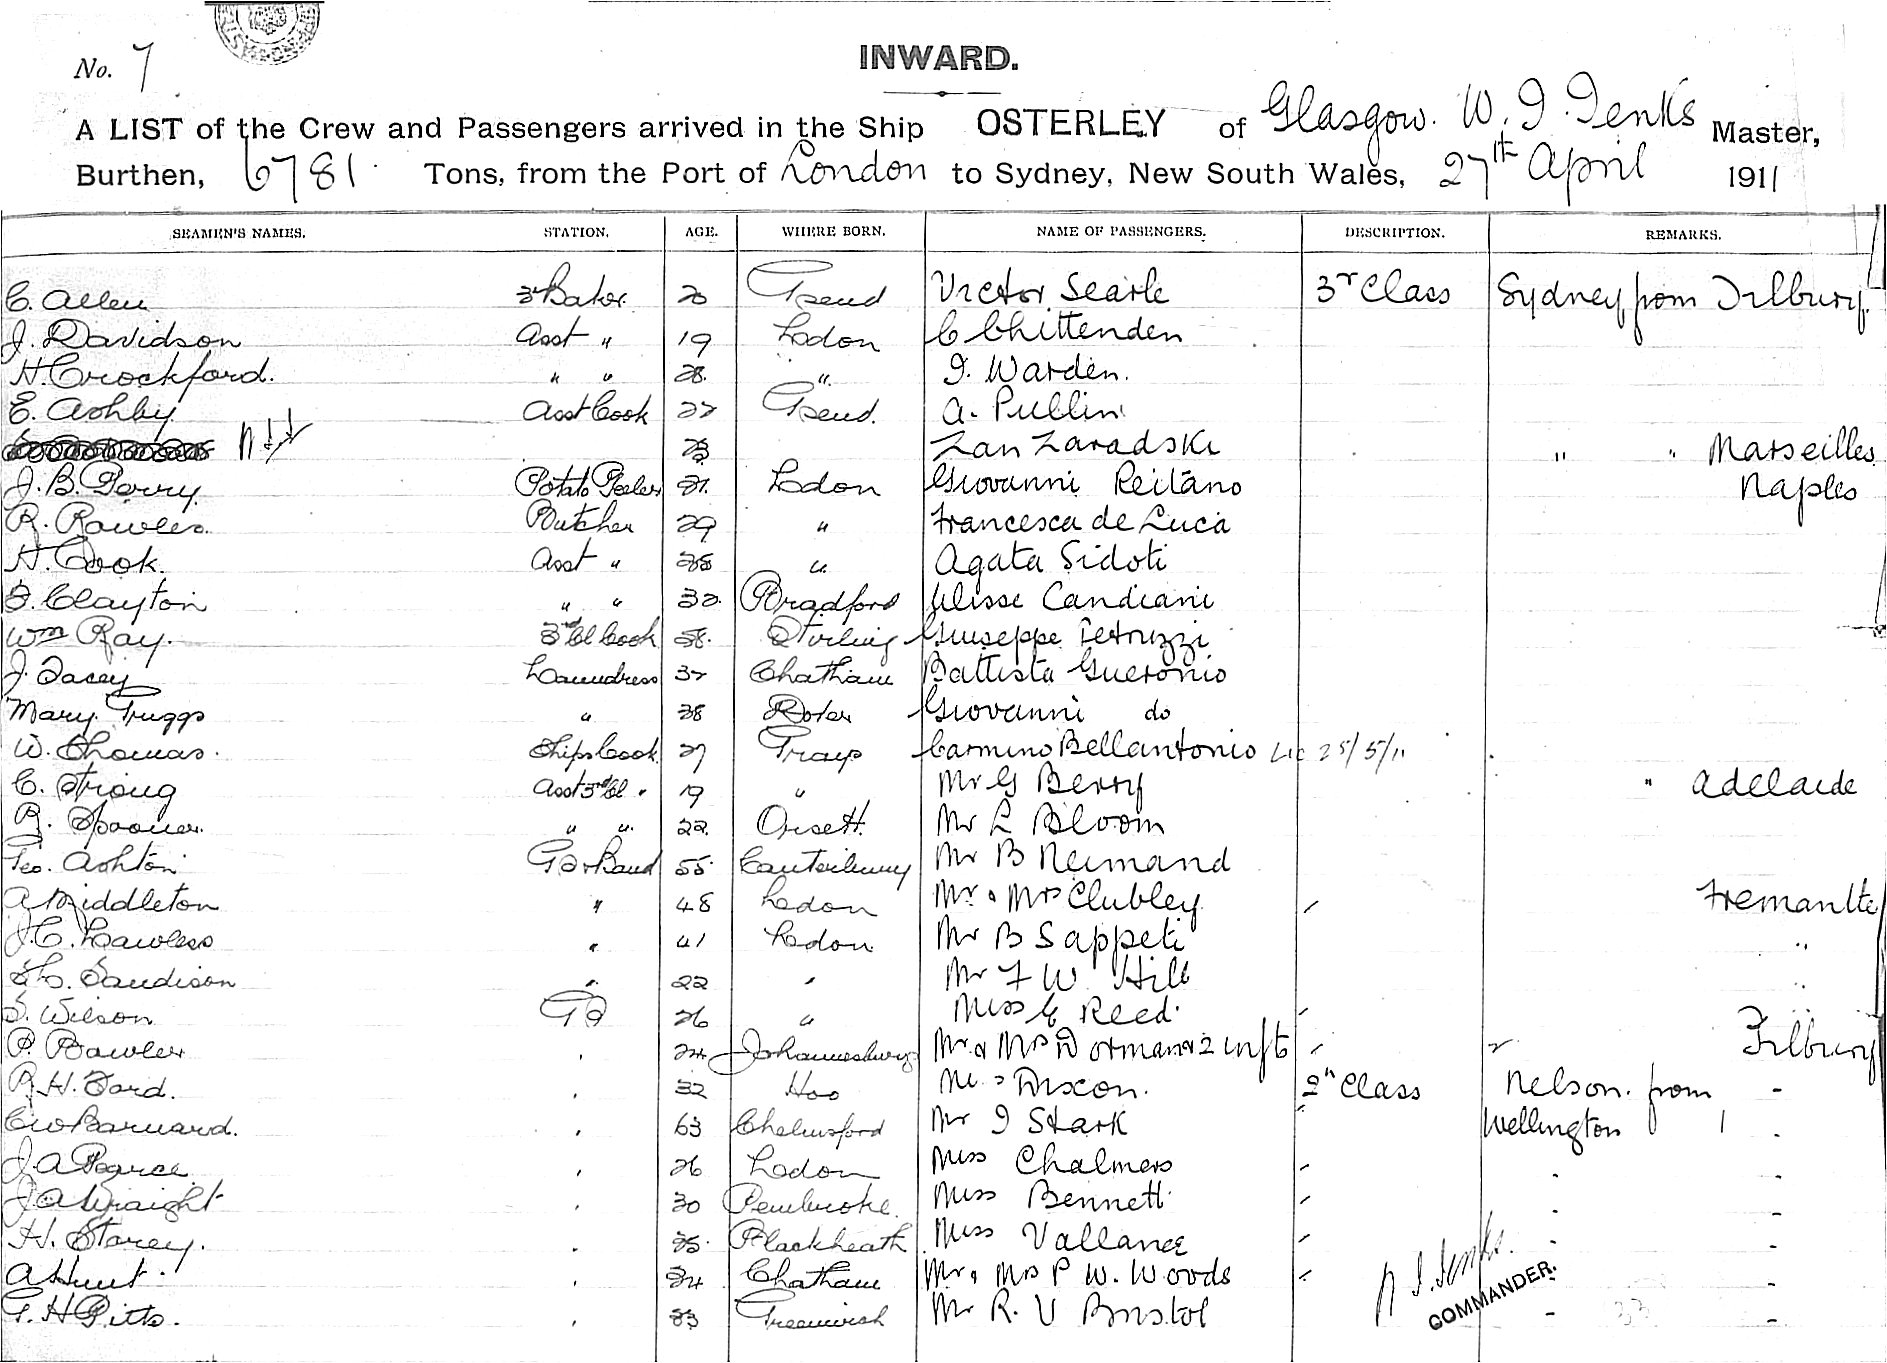 No. 7
INWARD.
A LIST of the Crew and Passengers arrived in the Ship OSTERLEY of Glasgow. W. J. Jenks Master,
Burthen, 6781. Tons, from the Port of London to Sydney, New South Wales, 27th April 1911
SEAMEN'S NAMES. STATION. AGE. WHERE BORN. NAME OF PASSENGERS. DESCRIPTION. REMARKS.
C. Allen 3r Baker. 20 Gsend Victor Searle 3r Class Sydney from Tilbury.
J. Davidson Asst " 19 Lodon C Chittenden
H. Crockford. " " 28. " J. Warden.
E. Ashby Asst Cook 27 Gsend. A. Pullin
Zan Zaradski " " Marseilles
J. B. Perry. Potato Peeler 21. Lodon Giovanni Reitano Naples
R. Rawles. Butcher 29 " Francesca de Luca
H. Cook. Asst " " Agata Sidoti
F. Clayton " " 32. Bradford Ulisse Candiani
Wm Ray. 3rd Cl Cook 58. Stirling Giuseppe Petruzzi
J. Lacey Laundress 37 Chatham Battista Gueronio
Mary Truggs " 38 Giovanni do
W. Thomas. Ships Cook 27 Grays Carmino Bellantonio 25/5/11
C. Strong Asst 3rd Cl " 19 " Mr G Berry " Adelaide
R. Spooner. " " 22. Orsett. Mr L Bloom
Geo. Ashton Gd + Band 55 Canterbury Mr B Neimand
A Middleton " 48 Lodon Mr & Mrs Clubley Fremantle
J. C. Lawless " 41 Lodon Mr B Sappeti "
Sandison " 22 " Mr F W Hill "
S. Wilson Gd 26 " Miss E Reed "
P. Bawler 24 Johannesburg Mr & Mrs Dorman & 2 infts " Tilbury
R. H. Ford. 32 Hoo Dixon. 2n Class Nelson. from
C W Barnard. 63 Chelmsford Mr J Stark Wellington
J. A Pearce 26 Lodon Miss Chalmers
J A Wraight 30 Pembroke. Miss Bennett
H. Storey. 25. Blackheath Miss Vallance
A Hunt 24 Chatham Mr & Mrs P W. Woods
G. H Pitts. 33 Greenwich Mr R. V Bristol
W. J. Jenks.
COMMANDER.
33